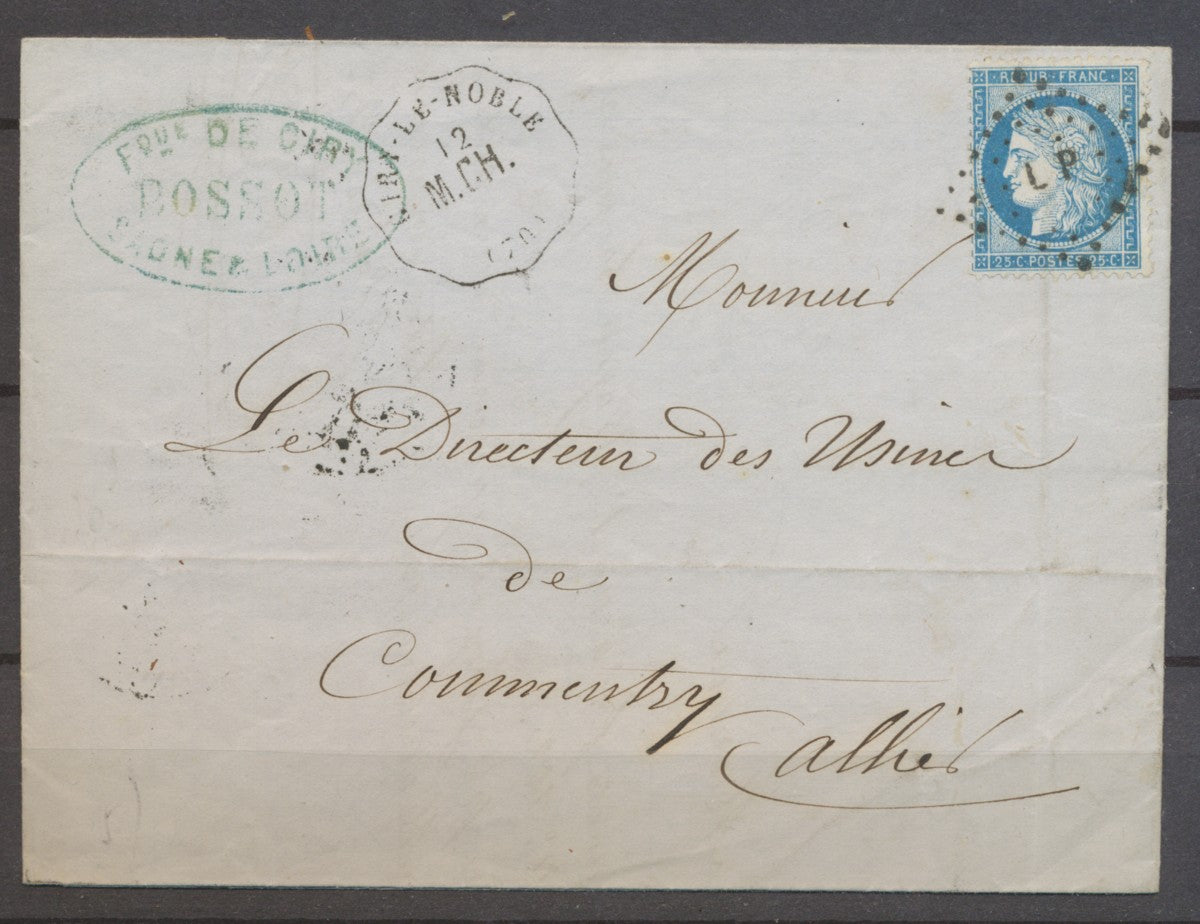 Fque DE CIRY
BOSSOT
SAONE & LOIRE
CIRY-LE-NOBLE
12
M.CH.
(70)
REPUB·FRANC
LP
25·C·POSTES·25·C
Monsieur
Le Directeur des Usines
de
Commentry
Allier